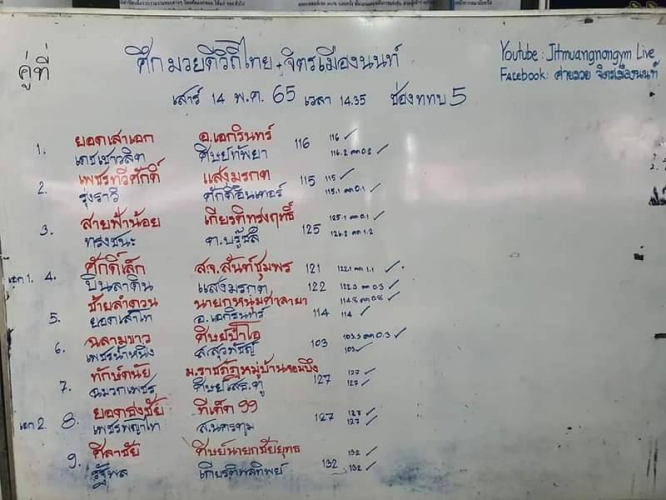 คู่ที่
ศึกมวยดีวิถีไทย+จิตรเมืองนนท์
เสาร์ 14 พ.ค. 65 เวลา 14.35 ช่อง ททบ 5
Youtube : Jitmuangnongym Live
Facebook: ค่ายมวย จิตรเมืองนนท์
1. ยอดเสาเอก อ.เอกรินทร์ 116 116 ✓
เดชเชาวลิต ศิษย์ทัพยา 116.2 ลด 0.2 ✓
2. เพชรทวีศักดิ์ แสงมรกต 115 115 ✓
รุ่งราวี ศักดิ์อินเตอร์ 115.1 ลด 0.1 ✓
3. สายฟ้าน้อย เกียรติทรงฤทธิ์ 125 125.1 ลด 0.1 ✓
ทรงชนะ ต.บรู๊ซลี 126.2 ลด 1.2 ✓
เอก 1. 4. ศักดิ์เล็ก สจ.สันท์ชุมพร 121 122.1 ลด 1.1 ✓
บินลาดิน แสงมรกต 122 122.3 ลด 0.3 ✓
5. ซ้ายลำดวน นายกหนุ่มศาลายา 114 114.8 ลด 0.8 ✓
ยอดเสาโท อ.เอกรินทร์ 114 ✓
6. ฉลามขาว ศิษย์ป๊าโอ 103 103.3 ลด 0.3 ✓
เพชรน้ำหนึ่ง ส.สุวพิชญ์ 103 ✓
7. ทักษ์ดนัย ม.ราชภัฏหมู่บ้านจอมบึง 127 127 ✓
ฉมวกเพชร 127 ✓
เอก 2 8. ยอดธงชัย ทีเด็ด 99 127 127 ✓
เพชรพญาไท ส.นครตุม 127 ✓
9. ศิลาชัย ศิษย์นายกชัยยุทธ 132 132 ✓
รัฐพล เกียรติพลทิพย์ 132 ✓